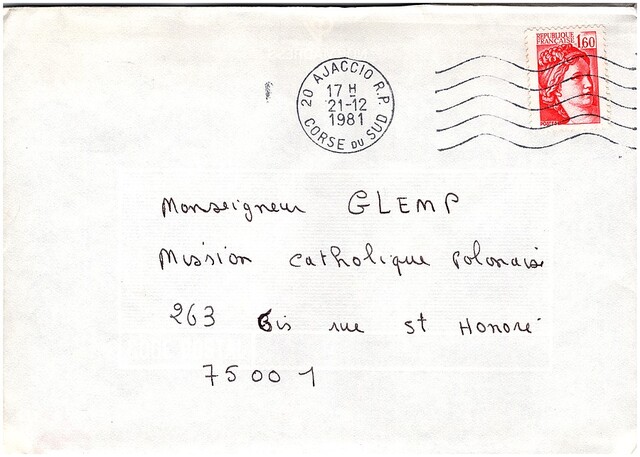 RÉPUBLIQUE
FRANÇAISE
1,60
20 AJACCIO R.P.
17 H
21-12
1981
CORSE DU SUD
Monseigneur GLEMP
Mission catholique polonaise
263 Bis rue St Honoré
75001